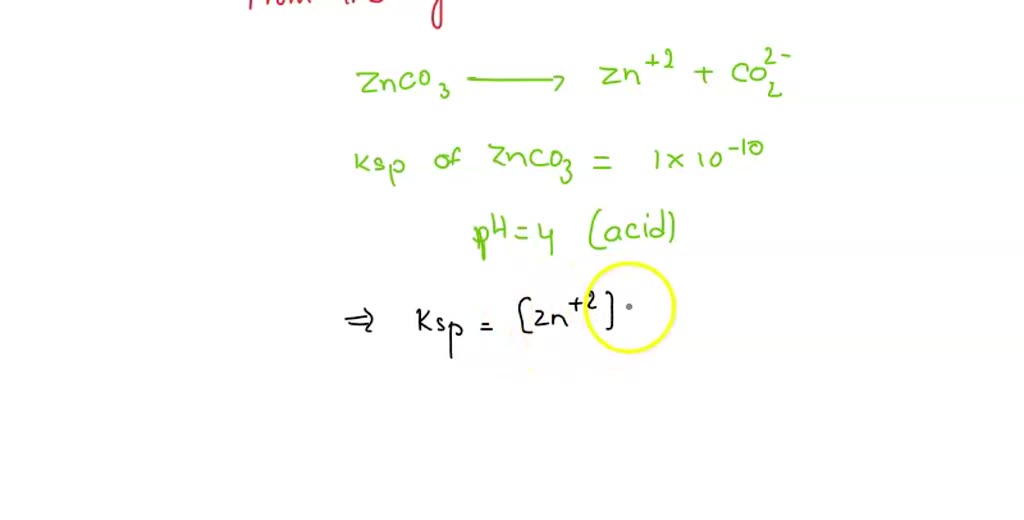 ZnCO₃ ⟶ Zn⁺² + CO₂²⁻
Ksp of ZnCO₃ = 1 × 10⁻¹⁰
pH = 4 (acid)
⇒ Ksp = [Zn⁺²]